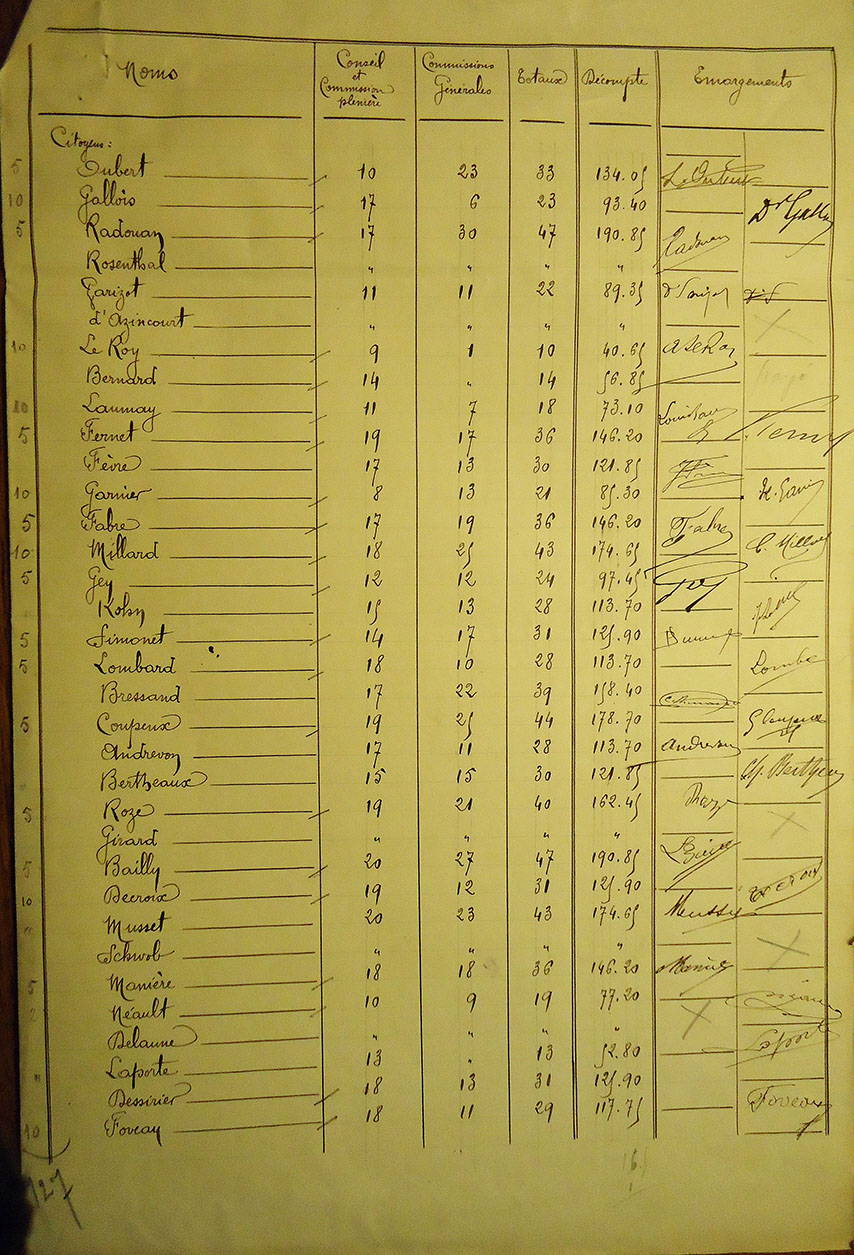 Noms Conseil et Commission plenière Commissions Générales Totaux Décompte Emargements
Citoyens:
5 Oubert 10 23 33 134.05
10 Gallois 17 6 23 93.40 Dr Gallois
5 Radouan 17 30 47 190.85 Radouan
Rosenthal " " " "
Garizot 11 11 22 89.35
d'Azincourt " " " "
10 Le Roy 9 1 10 40.65 A Le Roy
Bernard 14 " 14 56.85
10 Launay 11 7 18 73.10
5 Fernet 19 17 36 146.20
Fèvre 17 13 30 121.85
10 Garnier 8 13 21 85.30
5 Fabre 17 19 36 146.20 Fabre
10 Millard 18 25 43 174.65
5 Gey 12 12 24 97.45 Gey
Kohn 15 13 28 113.70
5 Simonet 14 17 31 125.90
5 Lombard 18 10 28 113.70
Bressand 17 22 39 158.40
5 Coupeux 19 25 44 178.70
Andrevon 17 11 28 113.70 Andrevon
Bertheaux 15 15 30 121.85
5 Roze 19 21 40 162.45
Girard " " " "
5 Bailly 20 27 47 190.85
10 Decroix 19 12 31 125.90
" Musset 20 23 43 174.65
Schwob " " " "
5 Manière 18 18 36 146.20
2 Néault 10 9 19 77.20
Delaune " " " "
" Laporte 13 " 13 52.80 Laporte
Bessirier 18 13 31 125.90
10 Foveau 18 11 29 117.75 Foveau
127